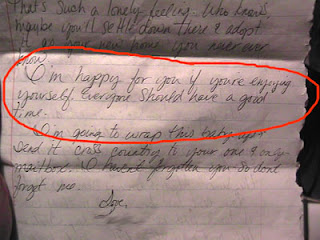 That's Such a lonely feeling. Who knows,
maybe you'll settle down there & adopt
it as your new home you never ever
know.
I'm happy for you if you're enjoying
yourself. Everyone should have a good
time.
I'm going to wrap this baby up &
Send it 'cross country to your one & only
mailbox. I havent forgotten you so dont
forget me.